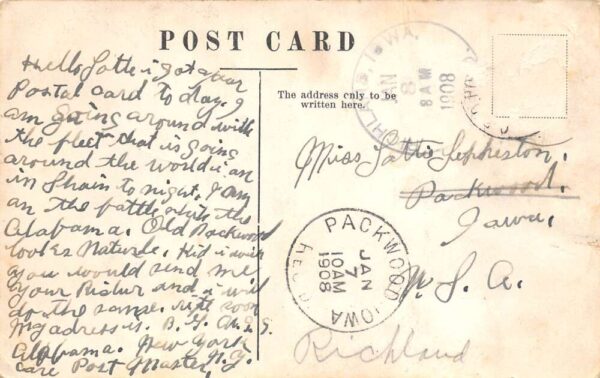 POST CARD
The address only to be
written here.
Hello Lottie i got your
Postal card to day. I
am going around with
the fleet that is going
around the world i am
in Spain to night. I am
an the battle ship the
Alabama. Old Packwood
lookes Naturle. Kid i wish
you would send me
your Pictur and i will
do the same. right soon
My adress is.
Alabama. New York
N.Y.
care Post Master.
IOWA.
JAN
8
8 AM
1908
Miss Lottie
Packwood.
Iowa.
U. S. A.
PACKWOOD IOWA
REC'D
JAN
7
10AM
1908
Richland